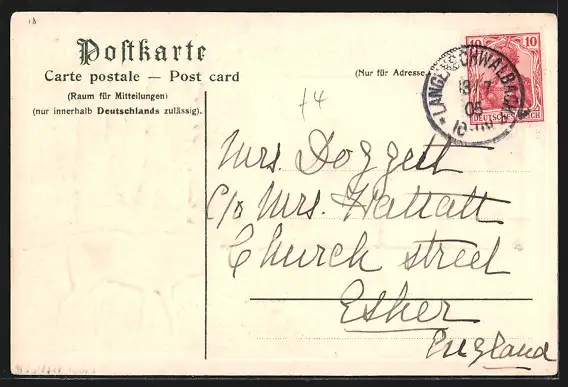 18
Postkarte
Carte postale — Post card
(Raum für Mitteilungen)
(nur innerhalb Deutschlands zulässig).
(Nur für Adresse
10
DEUTSCHES REICH
* LANGENSCHWALBACH *
13 7
05
f4
Mrs. Doggett
c/o Mrs. Wattatt
Church street
Esher
England